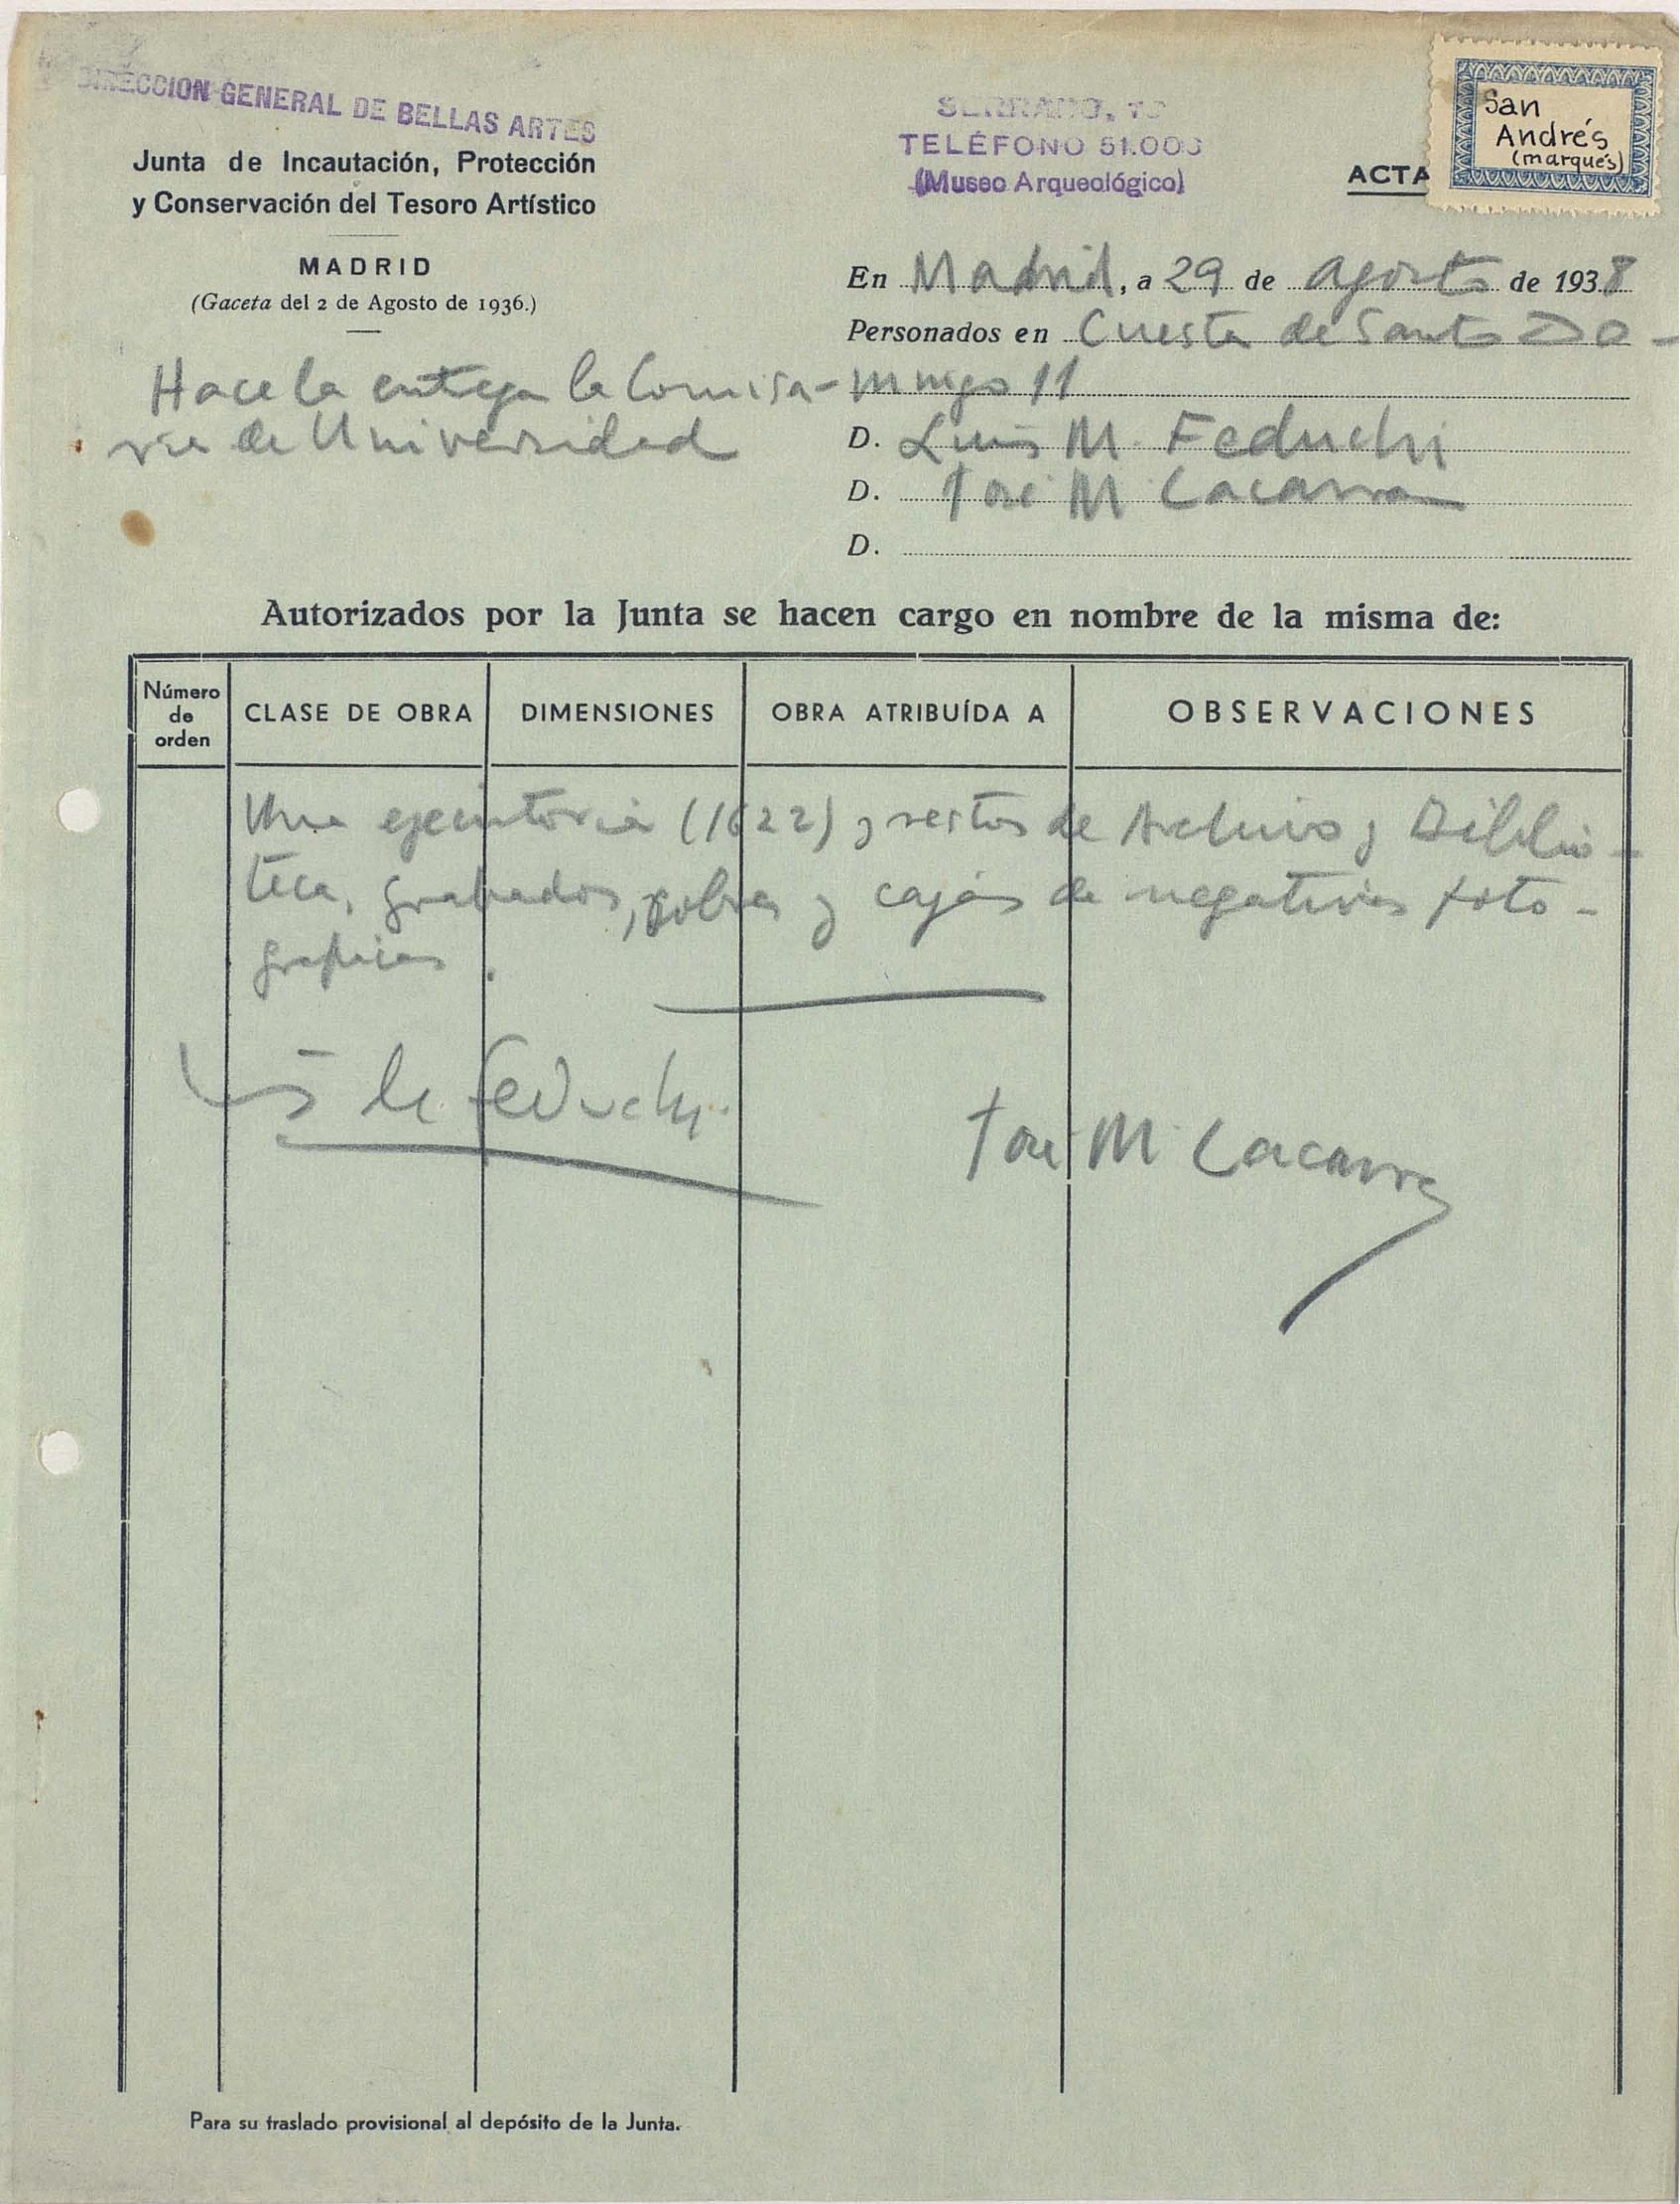 DIRECCION GENERAL DE BELLAS ARTES
Junta de Incautación, Protección
y Conservación del Tesoro Artístico
MADRID
(Gaceta del 2 de Agosto de 1936.)
Hace la entrega la Comisa-
ria de Universidad
SERRANO,
TELÉFONO 51.003
(Museo Arqueológico)
ACTA
San
Andrés
(marqués)
En Madrid, a 29 de agosto de 1938
Personados en Cuesta de Santo Do-
mingo 11
D. Luis M. Feduchi
D. José M. Lacarra
D.
Autorizados por la Junta se hacen cargo en nombre de la misma de:
Número
de
orden
CLASE DE OBRA
DIMENSIONES
OBRA ATRIBUÍDA A
OBSERVACIONES
Una ejecutoria (1622) y restos de Archivo y Biblio-
teca, grabados, y cajas de negativos foto-
graficos.
Feduchi
José M. Lacarra
Para su traslado provisional al depósito de la Junta.